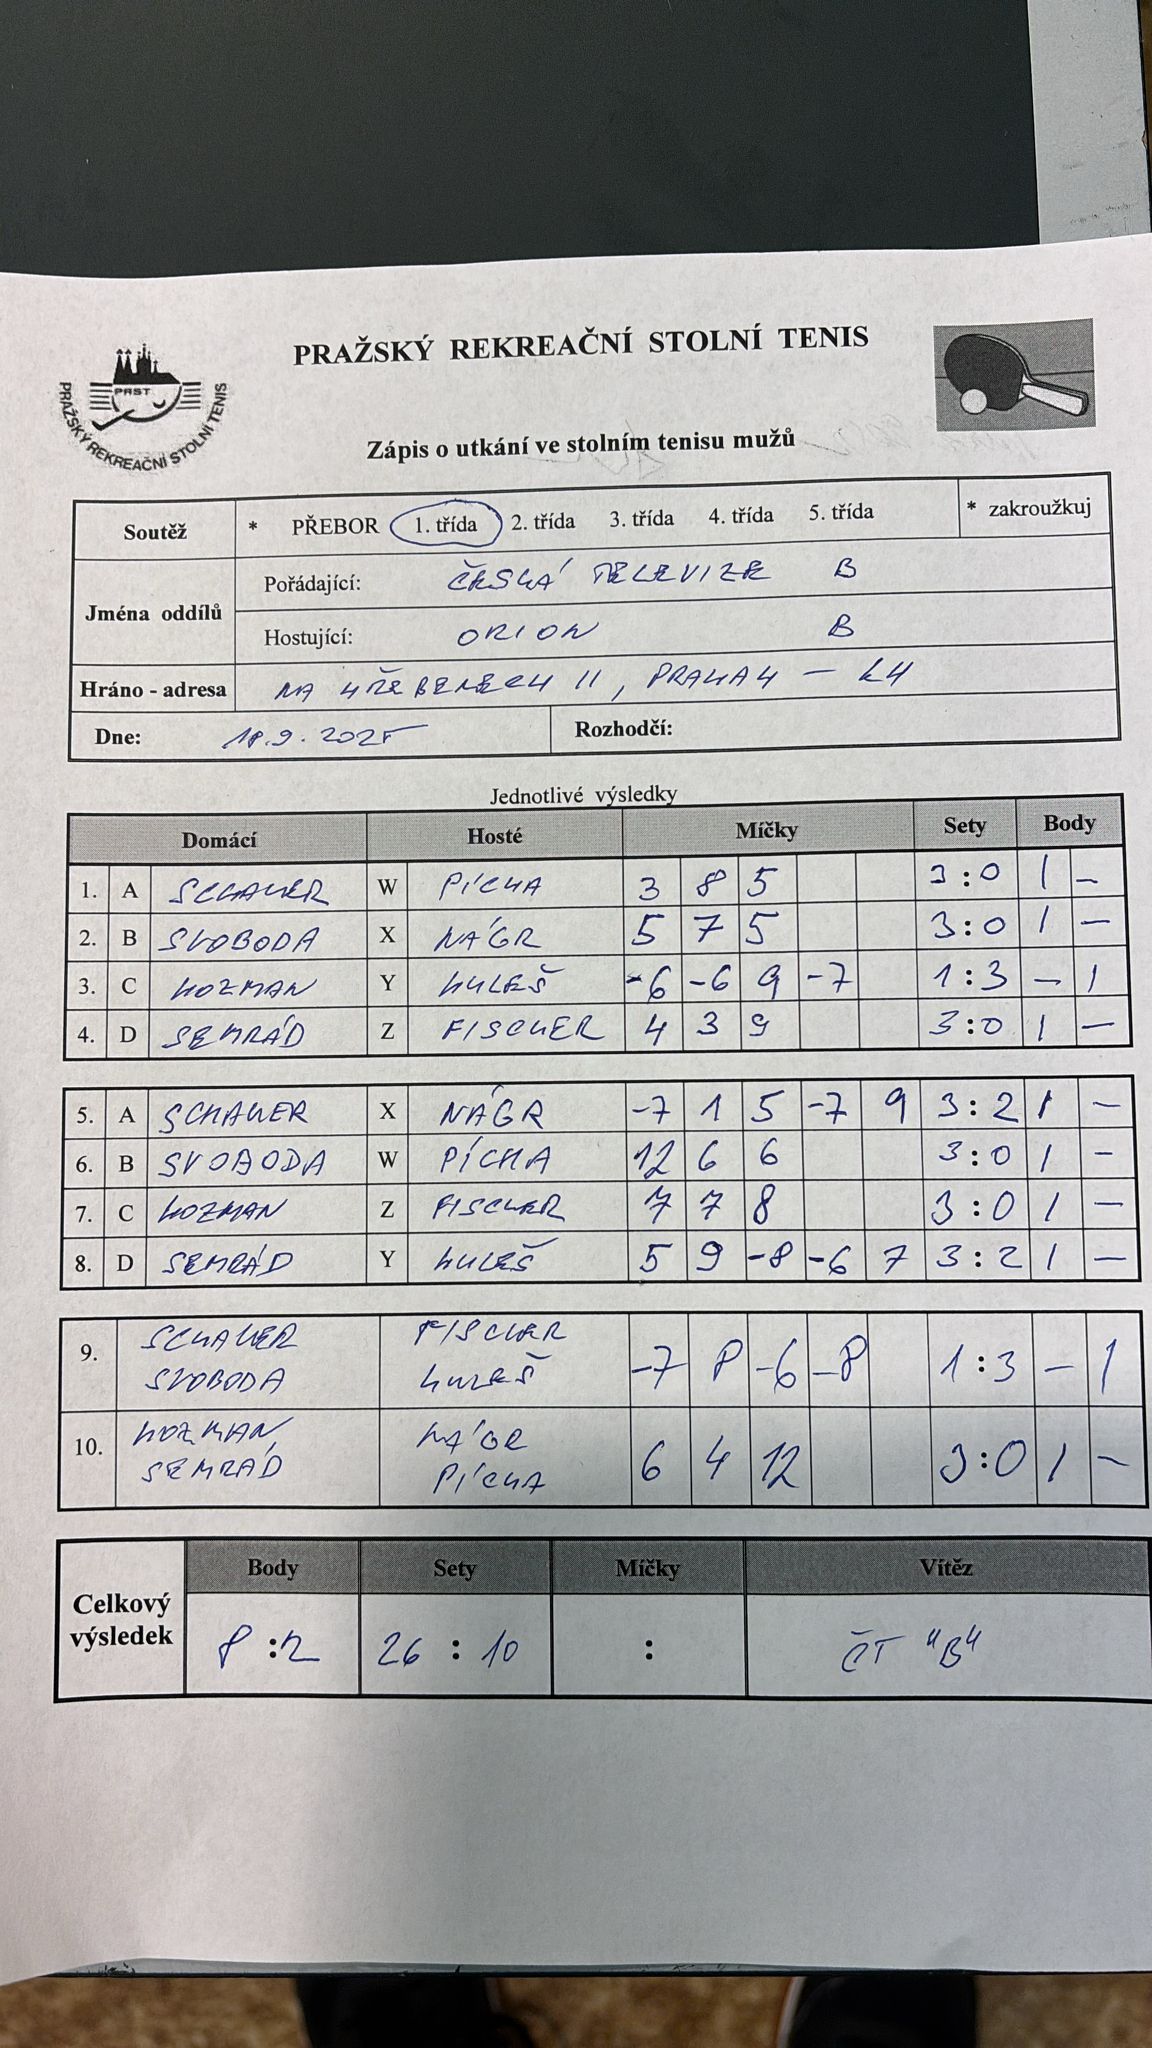 PRAŽSKÝ REKREAČNÍ STOLNÍ TENIS
PRST
PRAŽSKÝ REKREAČNÍ STOLNÍ TENIS
Zápis o utkání ve stolním tenisu mužů
Soutěž * PŘEBOR 1. třída 2. třída 3. třída 4. třída 5. třída * zakroužkuj
Jména oddílů
Pořádající: ČESKÁ TELEVIZE B
Hostující: ORION B
Hráno - adresa NA HŘEBENECH II, PRAHA 4 – K4
Dne: 18.9.2025 Rozhodčí:
Jednotlivé výsledky
Domácí Hosté Míčky Sety Body
1. A SCHAUER W PÍCHA 3 8 5 3:0 1 –
2. B SVOBODA X NÁGR 5 7 5 3:0 1 –
3. C KOZMAN Y KULEŠ -6 -6 9 -7 1:3 – 1
4. D SEMRÁD Z FISCHER 4 3 9 3:0 1 –
5. A SCHAUER X NÁGR -7 1 5 -7 9 3:2 1 –
6. B SVOBODA W PÍCHA 12 6 6 3:0 1 –
7. C KOZMAN Z FISCHER 7 7 8 3:0 1 –
8. D SEMRÁD Y KULEŠ 5 9 -8 -6 7 3:2 1 –
9. SCHAUER FISCHER -7 8 -6 -8 1:3 – 1
SVOBODA KULEŠ
10. KOZMAN NÁGR 6 4 12 3:0 1 –
SEMRÁD PÍCHA
Celkový výsledek
Body Sety Míčky Vítěz
8:2 26:10 : ČT "B"